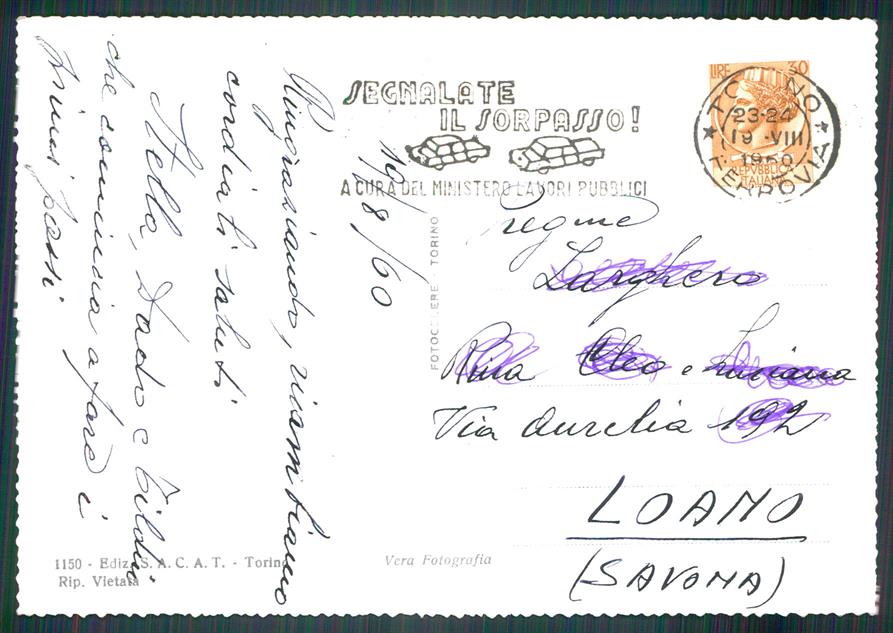 SEGNALATE
IL SORPASSO!
A CURA DEL MINISTERO LAVORI PUBBLICI
LIRE 30
TORINO
23-24
19 · VIII
1960
FERROVIA
REPVBBLICA
ITALIANA
19/8/60
Ringraziando, ricambiamo
cordiali saluti
Stella, Dado e
che comincia a fare i
primi passi
Pregme
Larghero
Rina Cleo e Luciana
Via Aurelia 192
LOANO
(SAVONA)
FOTOCELERE · TORINO
1150 - Ediz. S. A. C. A. T. - Torino
Rip. Vietata
Vera Fotografia